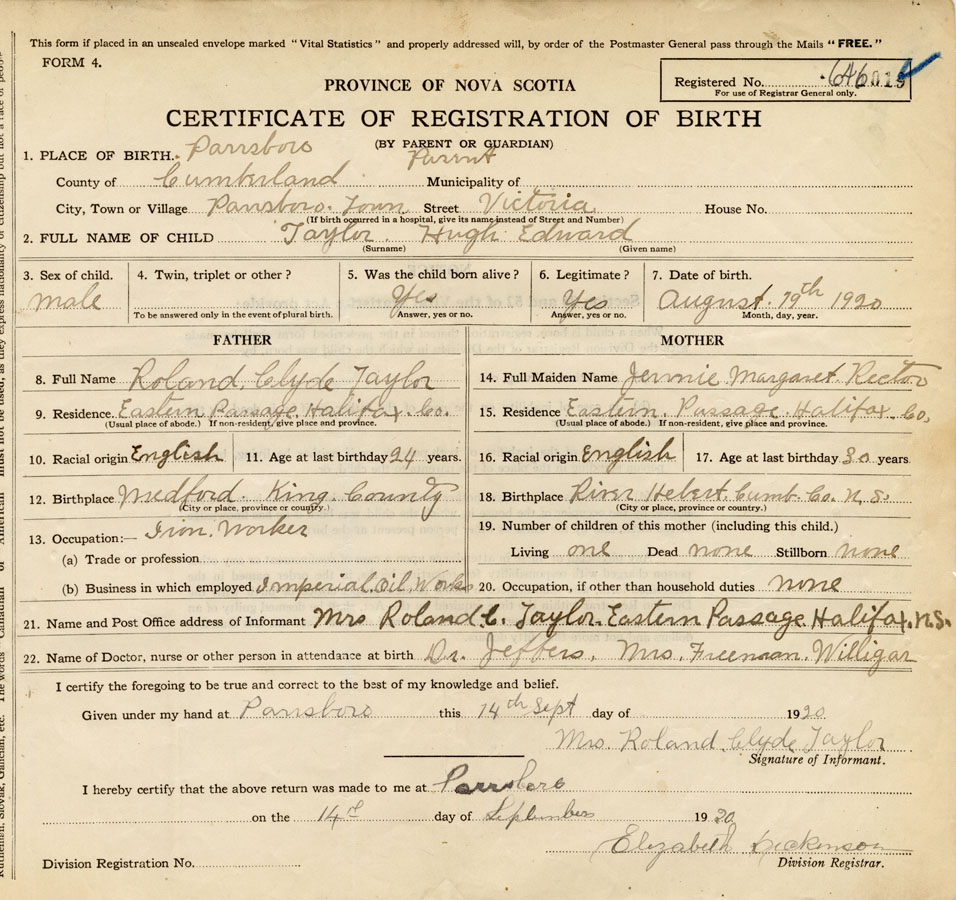 This form if placed in an unsealed envelope marked "Vital Statistics" and properly addressed will, by order of the Postmaster General pass through the Mails "FREE."
FORM 4.
PROVINCE OF NOVA SCOTIA
Registered No.
For use of Registrar General only.
CERTIFICATE OF REGISTRATION OF BIRTH
(BY PARENT OR GUARDIAN)
1. PLACE OF BIRTH. Parrsboro Parent
County of Cumberland Municipality of
City, Town or Village Parrsboro. Town Street Victoria House No.
(If birth occurred in a hospital, give its name instead of Street and Number)
2. FULL NAME OF CHILD Taylor. Hugh Edward
(Surname) (Given name)
3. Sex of child. 4. Twin, triplet or other? 5. Was the child born alive? 6. Legitimate? 7. Date of birth.
male Yes Yes August. 19th 1920
To be answered only in the event of plural birth. Answer, yes or no. Answer, yes or no. Month, day, year.
FATHER MOTHER
8. Full Name Roland. Clyde Taylor
9. Residence. Eastern Passage, Halifax Co.
(Usual place of abode.) If non-resident, give place and province.
10. Racial origin English 11. Age at last birthday 24 years.
12. Birthplace Medford. King. County
(City or place, province or country.)
13. Occupation:— Iron. Worker
(a) Trade or profession
(b) Business in which employed Imperial. Oil. Works
14. Full Maiden Name Jennie. Margaret. Rector
15. Residence Eastern. Passage. Halifax. Co,
(Usual place of abode.) If non-resident, give place and province.
16. Racial origin English 17. Age at last birthday 30 years
18. Birthplace River Hebert. Cumb. Co. N. S.
(City or place, province or country.)
19. Number of children of this mother (including this child.)
Living one Dead none Stillborn none
20. Occupation, if other than household duties none
21. Name and Post Office address of Informant Mrs Roland C. Taylor. Eastern Passage Halifax. N.S.
22. Name of Doctor, nurse or other person in attendance at birth Dr. Jeffers. Mrs. Freeman. Willigar
I certify the foregoing to be true and correct to the best of my knowledge and belief.
Given under my hand at Parrsboro this 14th Sept day of 1920
Mrs. Roland Clyde Taylor
Signature of Informant.
I hereby certify that the above return was made to me at Parrsboro
on the 14th day of September 1920
Elizabeth Dickinson
Division Registrar.
Division Registration No.